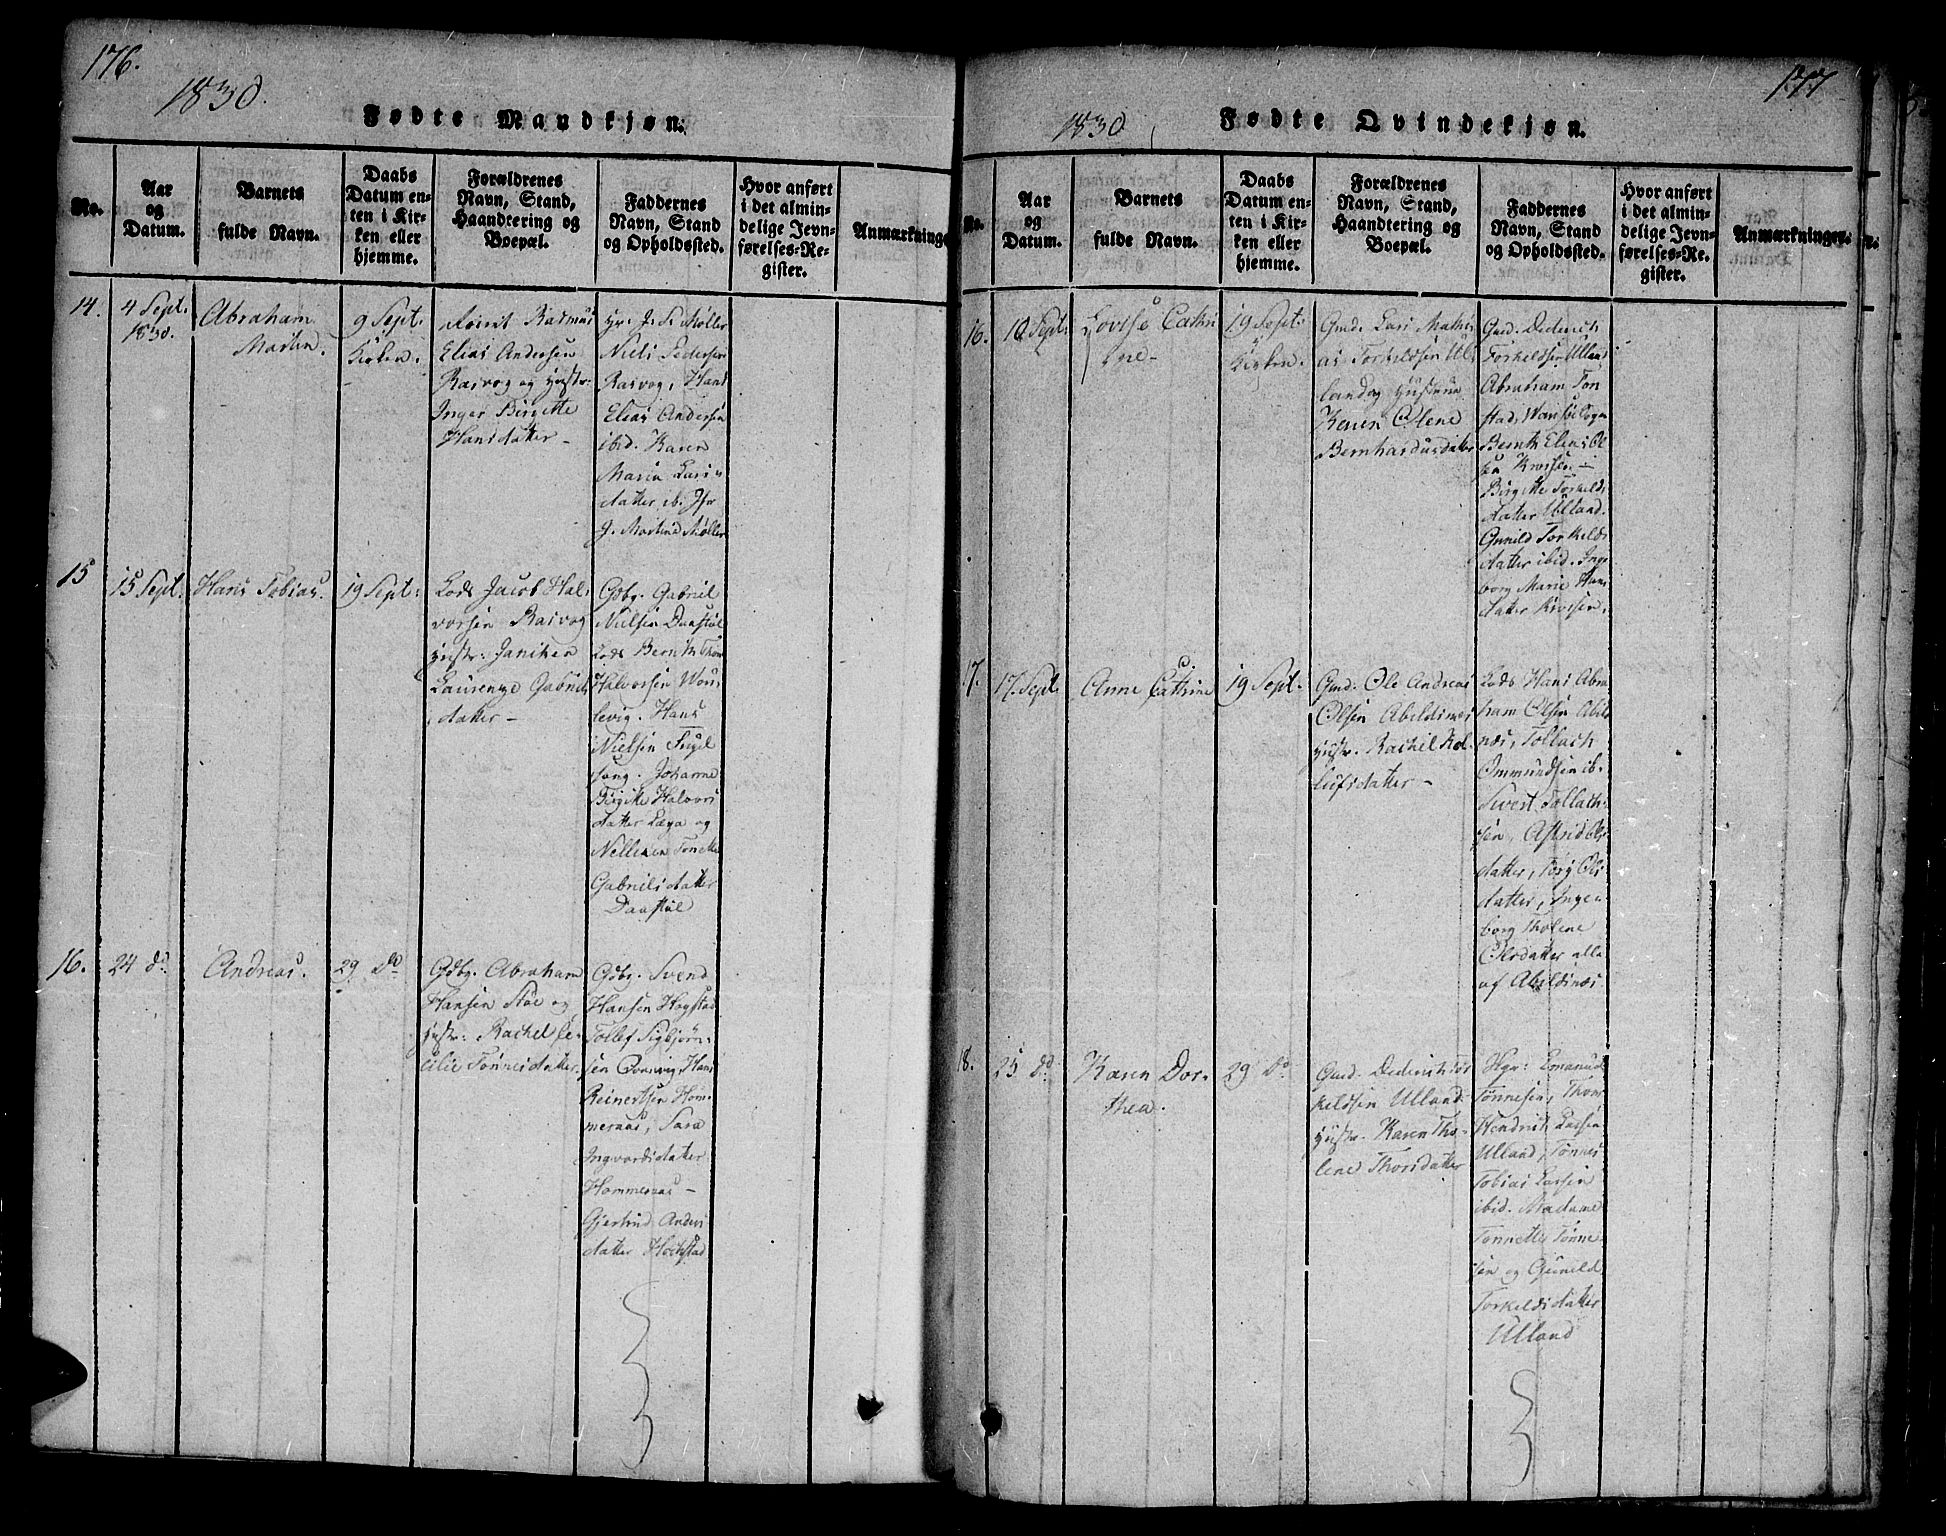 176.
1830.
Fødte Mandkjøn.
No.
Aar
og
Datum.
Barnets
fulde Navn.
Daabs
Datum en-
ten i Kir-
ken eller
hjemme.
Forældrenes
Navn, Stand,
Haandtering og
Boepæl.
Faddernes
Navn, Stand
og Opholdssted.
Hvor anført
i det almin-
delige Jevn-
førelses-Re-
gister.
Anmærkninger
14.
4 Sept.
1830.
Abraham
Martin.
9 Sept.
Kirken.
Rasmus
Elias Andersen
Rasvog og Hustr:
Inger Birgitte
Hansdatter –
Hr. J. S. Møller
Niels Pedersen
Rasvog, Hans
Elias Andersen
ibid. Karen
Maria Lars-
datter ib. Jfr
J. Martine Møller
15
15 Sept.
Hans Tobias.
19 Sept:
Lods Jacob Hal-
vorsen Rasvog
Hustr: Janiken
Laurenze Gabriels
datter –
Gdbg. Gabriel
Nielsen Daastøl
Lods Bernth Thom
Halvorsen
levig. Hans
Nielsen Fugel
sang. Johanne
Birgitte Halvors
datter Læga og
Nellinen Tonette
Gabrielsdatter
Daastøl
16.
24 do
Andreas.
29 Do
Gdbg. Abraham
Hansen Stöe og
Hustr: Rachel Ce-
cilie Tønnesdatter
Gdbg. Svend
Hansen Hogstad
Tollef Sigbjørn-
sen Hans
Reinertsen Hom-
meraas, Sara
Ingvardsdatter
Hommeraas –
Gjertrud Anders
datter Hochstad
177
1830
Fødte Qvindekjøn.
No.
Aar
og
Datum.
Barnets
fulde Navn.
Daabs
Datum en-
ten i Kir-
ken eller
hjemme.
Forældrenes
Navn, Stand,
Haandtering og
Boepæl.
Faddernes
Navn, Stand
og Opholdssted.
Hvor anført
i det almin-
delige Jevn-
førelses-Re-
gister.
Anmærkninger.
16.
10 Sept:
Lovise Cathri
ne –
19 Sept:
Kirken.
Gmd. Lars Mathi
as Torkildsen Ul-
land og Hustrue
Karen Olene
Bernhardusdatter
Gmd. Dederich
Torkeldsen Ulland
Abraham Ton
stad, Wanse Sogn
Bernth Elias Ol
sen –
Birgitte Torkelds
datter Ulland.
Gunild Torkelds
datter ibid. Inge
borg Marie Hans
datter
17.
17 Sept.
Anne Cathrine
19 Sept.
Gmd. Ole Andreas
Olsen Abildsnæs
Hustr. Rachel Rol-
lufsdatter –
Lods Hans Abra
ham Olsen Abild
næs, Tollach
Ommundsen ib.
Sivert Tollach-
sen, Astrid Ols
datter, Torg Ols
datter, Ingen
borg Tholene
Olsdatter alle
af Abildsnæs
18.
25 do
Karen Dor-
thea.
29 Do
Gmd. Dederich Tor
keldsen Ulland
Hustr. Karen Tho-
lene Thorsdatter
Hgr: Emanuel
Tønnesen, Thom
Hendrich Larsen
Ulland, Tønnes
Tobias Larsen
ibid. Madame
Tonnette Tønne
sen og Gunild
Torkeldsdatter
Ulland